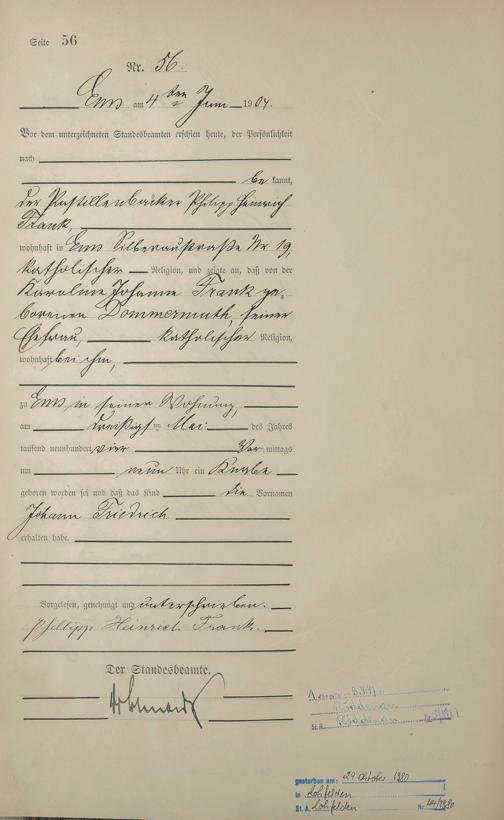 Seite 56
Nr. 56.
Ems am 4ten Juni 1904.
Vor dem unterzeichneten Standesbeamten erschien heute, der Persönlichkeit
nach
be kannt,
der Pastillenbäcker Philipp Heinrich
Frank,
wohnhaft in Ems Silberaustraße Nr 19,
katholischer Religion, und zeigte an, daß von der
Karoline Johanne Frank ge-
borenen Dommermuth, seiner
Ehefrau, katholischer Religion,
wohnhaft bei ihm,
zu Ems in seiner Wohnung,
am dreißigsten Mai des Jahres
tausend neunhundert vier Vor mittags
um neun Uhr ein Knabe
geboren worden sei und daß das Kind die Vornamen
Johann Friedrich
erhalten habe.
Vorgelesen, genehmigt und unterschrieben.
Phillipp Heinrich Frank.
Der Standesbeamte.
St. A.
gestorben am: 29 Oktober 1980
in Lohfelden
St. A. Lohfelden Nr. 44/1980